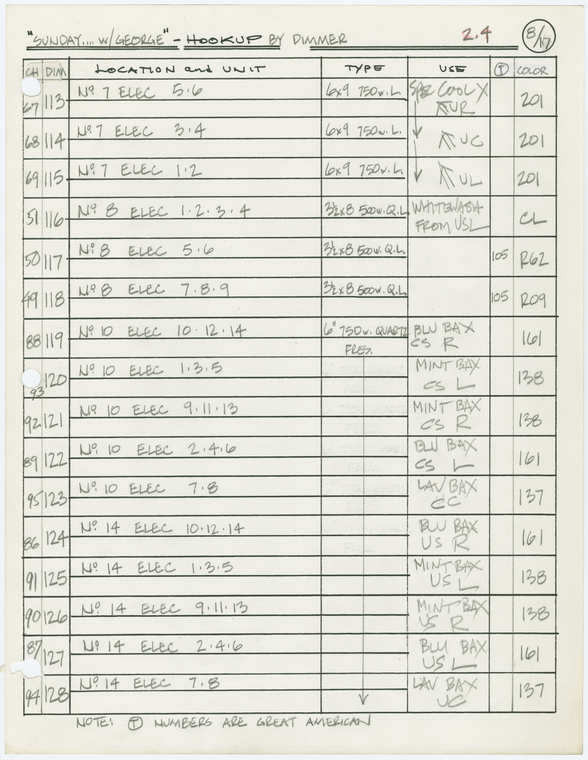 "SUNDAY.... W/GEORGE" - HOOKUP BY DIMMER 2.4 8/17
CH DIM LOCATION and UNIT TYPE USE Ⓣ COLOR
67 113 Nº 7 ELEC 5·6 6x9 750w.L. COOL X UR 201
68 114 Nº 7 ELEC 3·4 6x9 750w.L. UC 201
69 115 Nº 7 ELEC 1·2 6x9 750w.L. UL 201
51 116 Nº 8 ELEC 1·2·3·4 3½x8 500w.Q.L. WHITEWASH FROM USL CL
50 117 Nº 8 ELEC 5·6 3½x8 500w.Q.L. 105 R62
49 118 Nº 8 ELEC 7·8·9 3½x8 500w.Q.L. 105 R09
88 119 Nº 10 ELEC 10·12·14 6" 750w. QUARTZ FRES. BLU BAX CS R 161
93 120 Nº 10 ELEC 1·3·5 MINT BAX CS L 138
92 121 Nº 10 ELEC 9·11·13 MINT BAX CS R 138
89 122 Nº 10 ELEC 2·4·6 BLU BAX CS L 161
95 123 Nº 10 ELEC 7·8 LAV BAX CC 137
86 124 Nº 14 ELEC 10·12·14 BLU BAX US R 161
91 125 Nº 14 ELEC 1·3·5 MINT BAX US L 138
90 126 Nº 14 ELEC 9·11·13 MINT BAX US R 138
87 127 Nº 14 ELEC 2·4·6 BLU BAX US L 161
94 128 Nº 14 ELEC 7·8 LAV BAX UC 137
NOTE: Ⓣ NUMBERS ARE GREAT AMERICAN